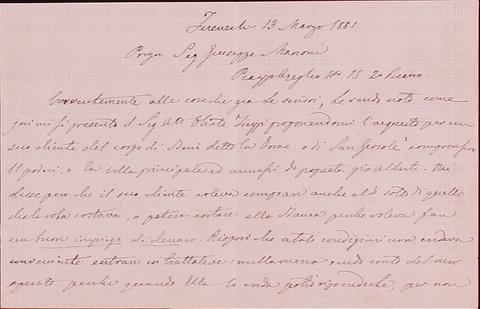 Firenze li 13 Marzo 1881.
Pregno Sig Giuseppe Marconi
Piazza N° 15 2° Piano.
alle cose che già le scrissi, Le rendo noto come
jeri mi si presentò il Sig proponendomi l'acquisto per un
suo cliente del corpo di Beni detto la Torre o di San Gersolè comprensivo
11 poderi, e la villa principale ed annessi di proprietà già Alberti. Mi
disse però che il suo cliente voleva comprare anche al di sotto di quello
che le cosa costava, o poteva costare alla Banca perchè voleva fare
un buon impiego di denaro. Risposi che a tali condizioni non andava
conveniente entrare in trattative: nulla meno rendo conto del mio
operato perchè quando Ella lo creda potrà rispondere, per non